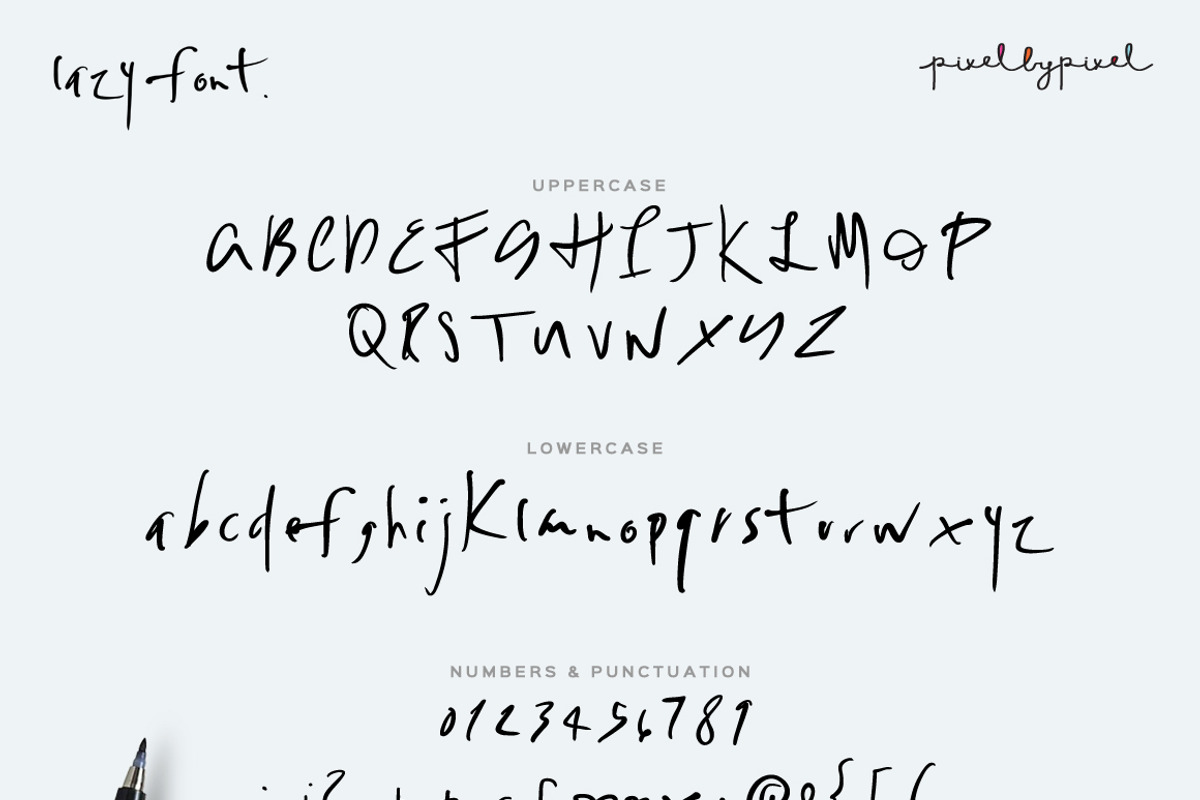 lazy font.
pixelbypixel
UPPERCASE
ABCDEFGHIJKLMOP
QRSTUVWXYZ
LOWERCASE
abcdefghijklmnopqrstuvwxyz
NUMBERS & PUNCTUATION
0123456789